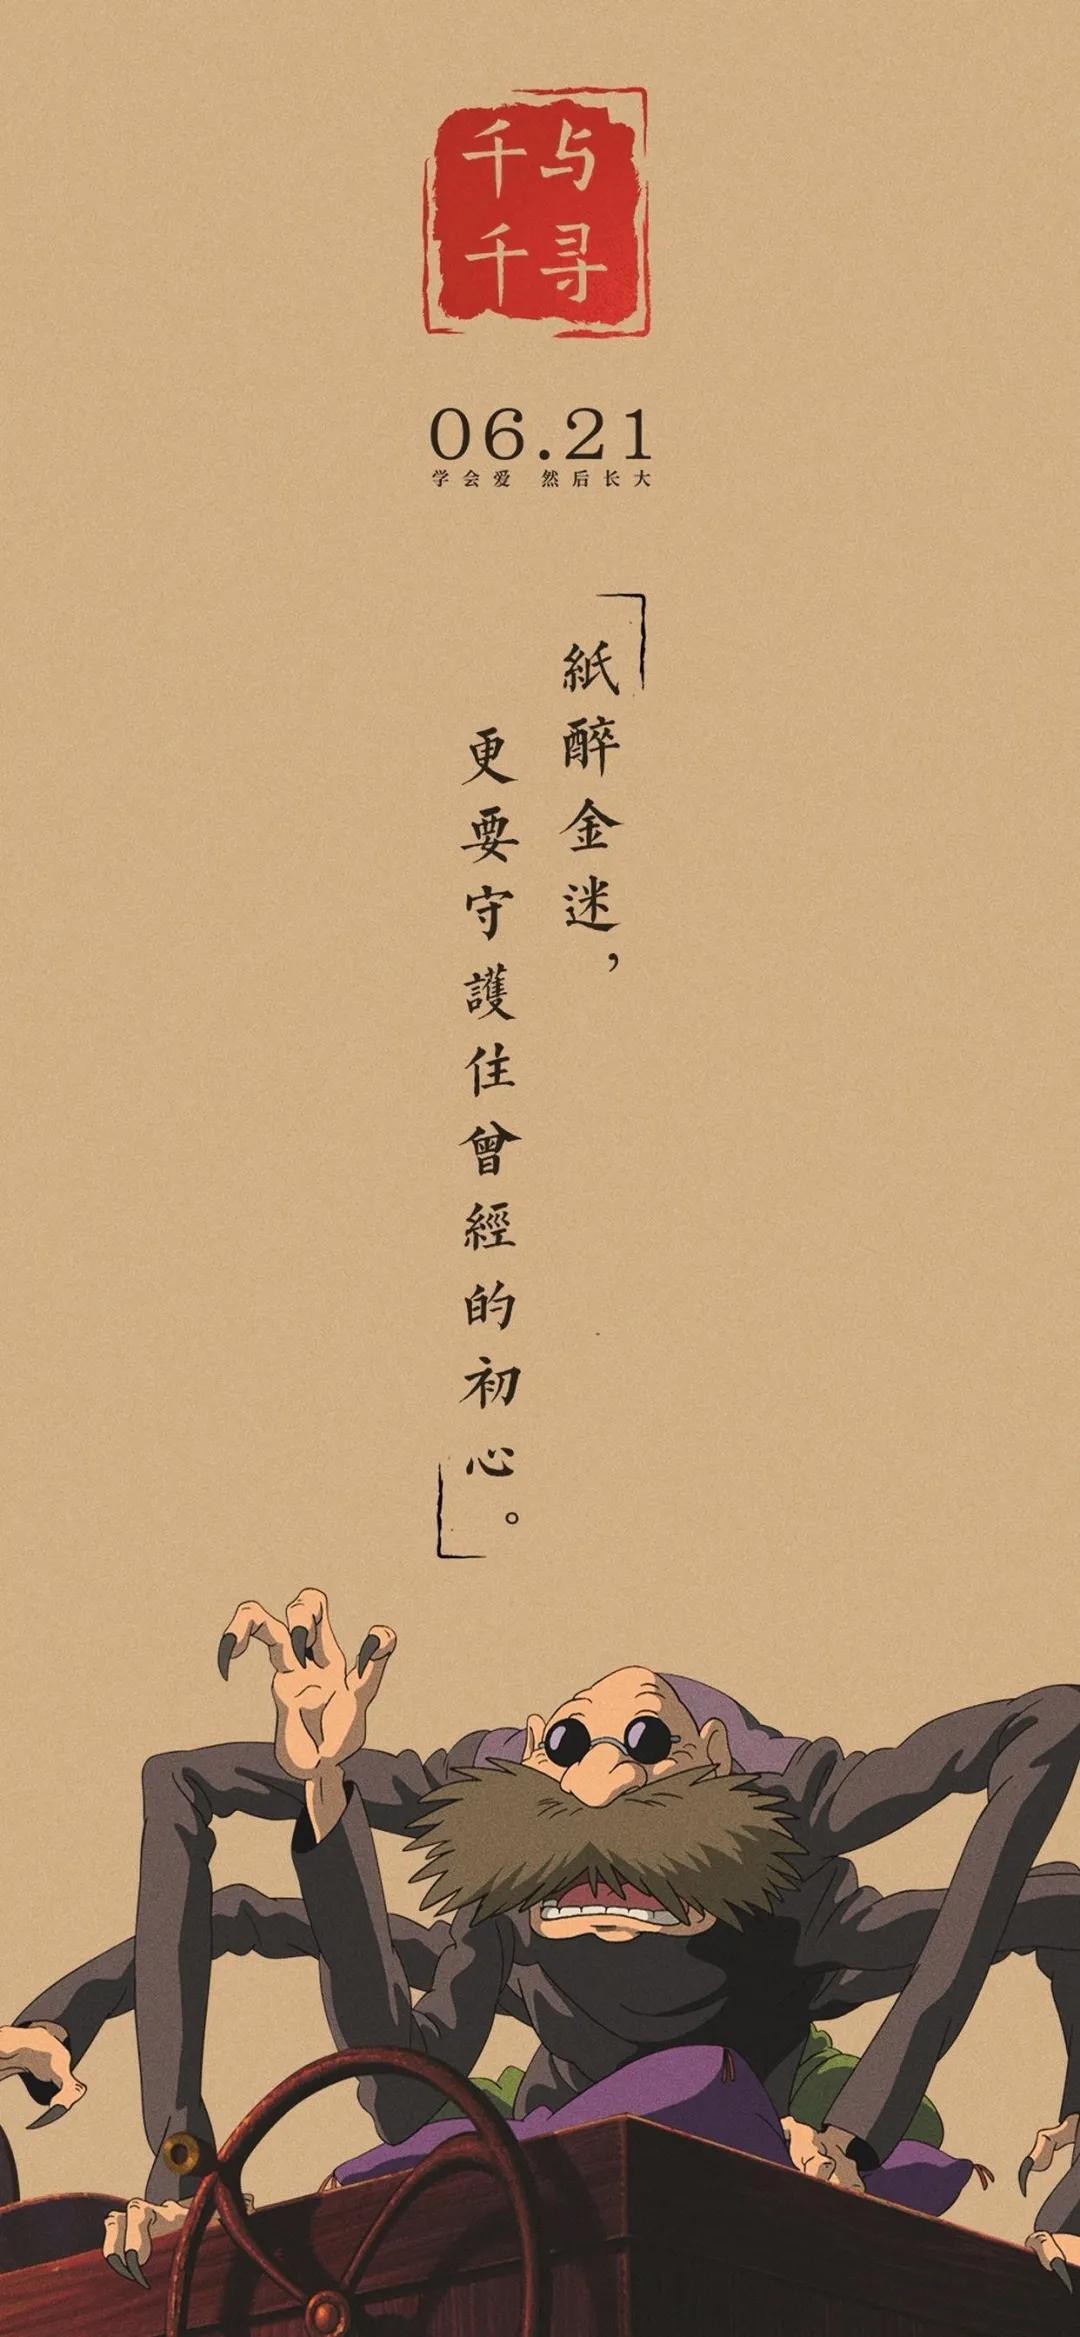 千与
千寻
06.21
学会爱 然后长大
「紙醉金迷，
更要守護住曾經的初心。」